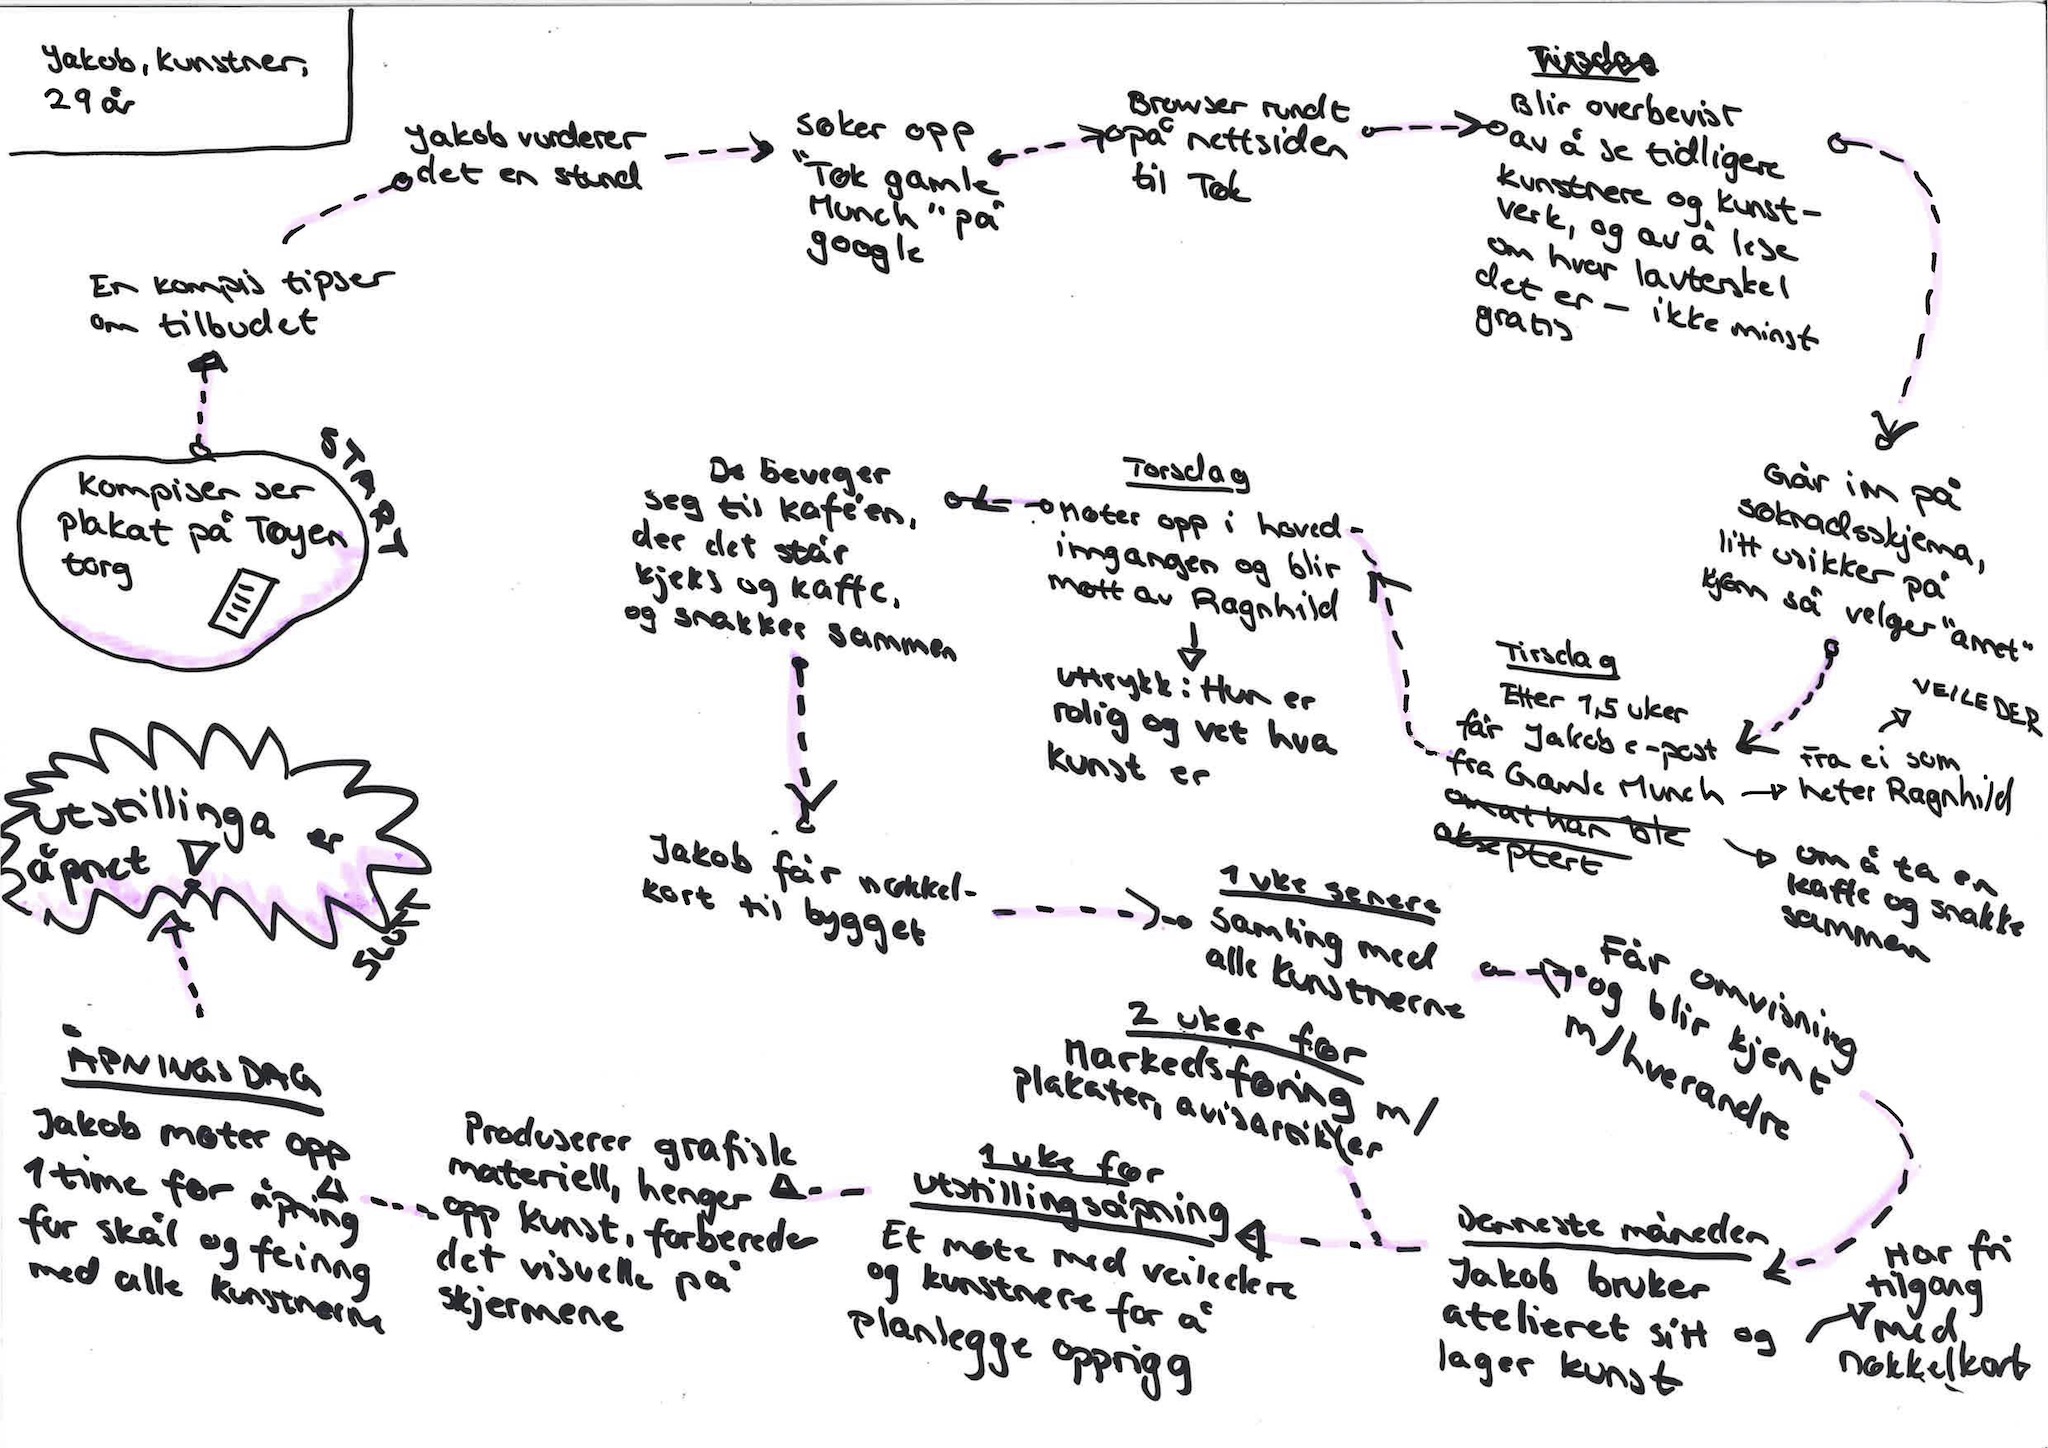 Jakob, kunstner,
29 år
START
Kompisen ser
plakat på Tøyen
torg
En kompis tipser
om tilbudet
Jakob vurderer
det en stund
Søker opp
"Tøk gamle
Munch" på
google
Browser rundt
på nettsiden
til Tøk
Tirsdag
Blir overbevist
av å se tidligere
kunstnere og kunst-
verk, og av å lese
om hvor lavterskel
det er – ikke minst
gratis
Går inn på
søknadsskjema,
litt usikker på
kjønn så velger "annet"
Tirsdag
Etter 1,5 uker
får Jakob e-post
fra Gamle Munch
om at han ble
akseptert
Fra ei som
heter Ragnhild
VEILEDER
om å ta en
kaffe og snakke
sammen
Torsdag
møter opp i hoved-
inngangen og blir
møtt av Ragnhild
uttrykk: Hun er
rolig og vet hva
kunst er
De beveger
seg til kaféen,
der det står
kjeks og kaffe,
og snakker sammen
Jakob får nøkkel-
kort til bygget
1 uke senere
Samling med
alle kunstnerne
Får omvisning
og blir kjent
m/hverandre
Denneste måneden
Jakob bruker
atelieret sitt og
lager kunst
Har fri
tilgang
med
nøkkelkort
2 uker før
Markedsføring m/
plakater, avisartikler
1 uke før
utstillingsåpning
Et møte med veiledere
og kunstnere for å
planlegge opprigg
Produserer grafisk
materiell, henger
opp kunst, forbereder
det visuelle på
skjermene
ÅPNINGSDAG
Jakob møter opp
1 time før åpning
for skål og feiring
med alle kunstnerne
Utstillinga er
åpnet
SLUTT